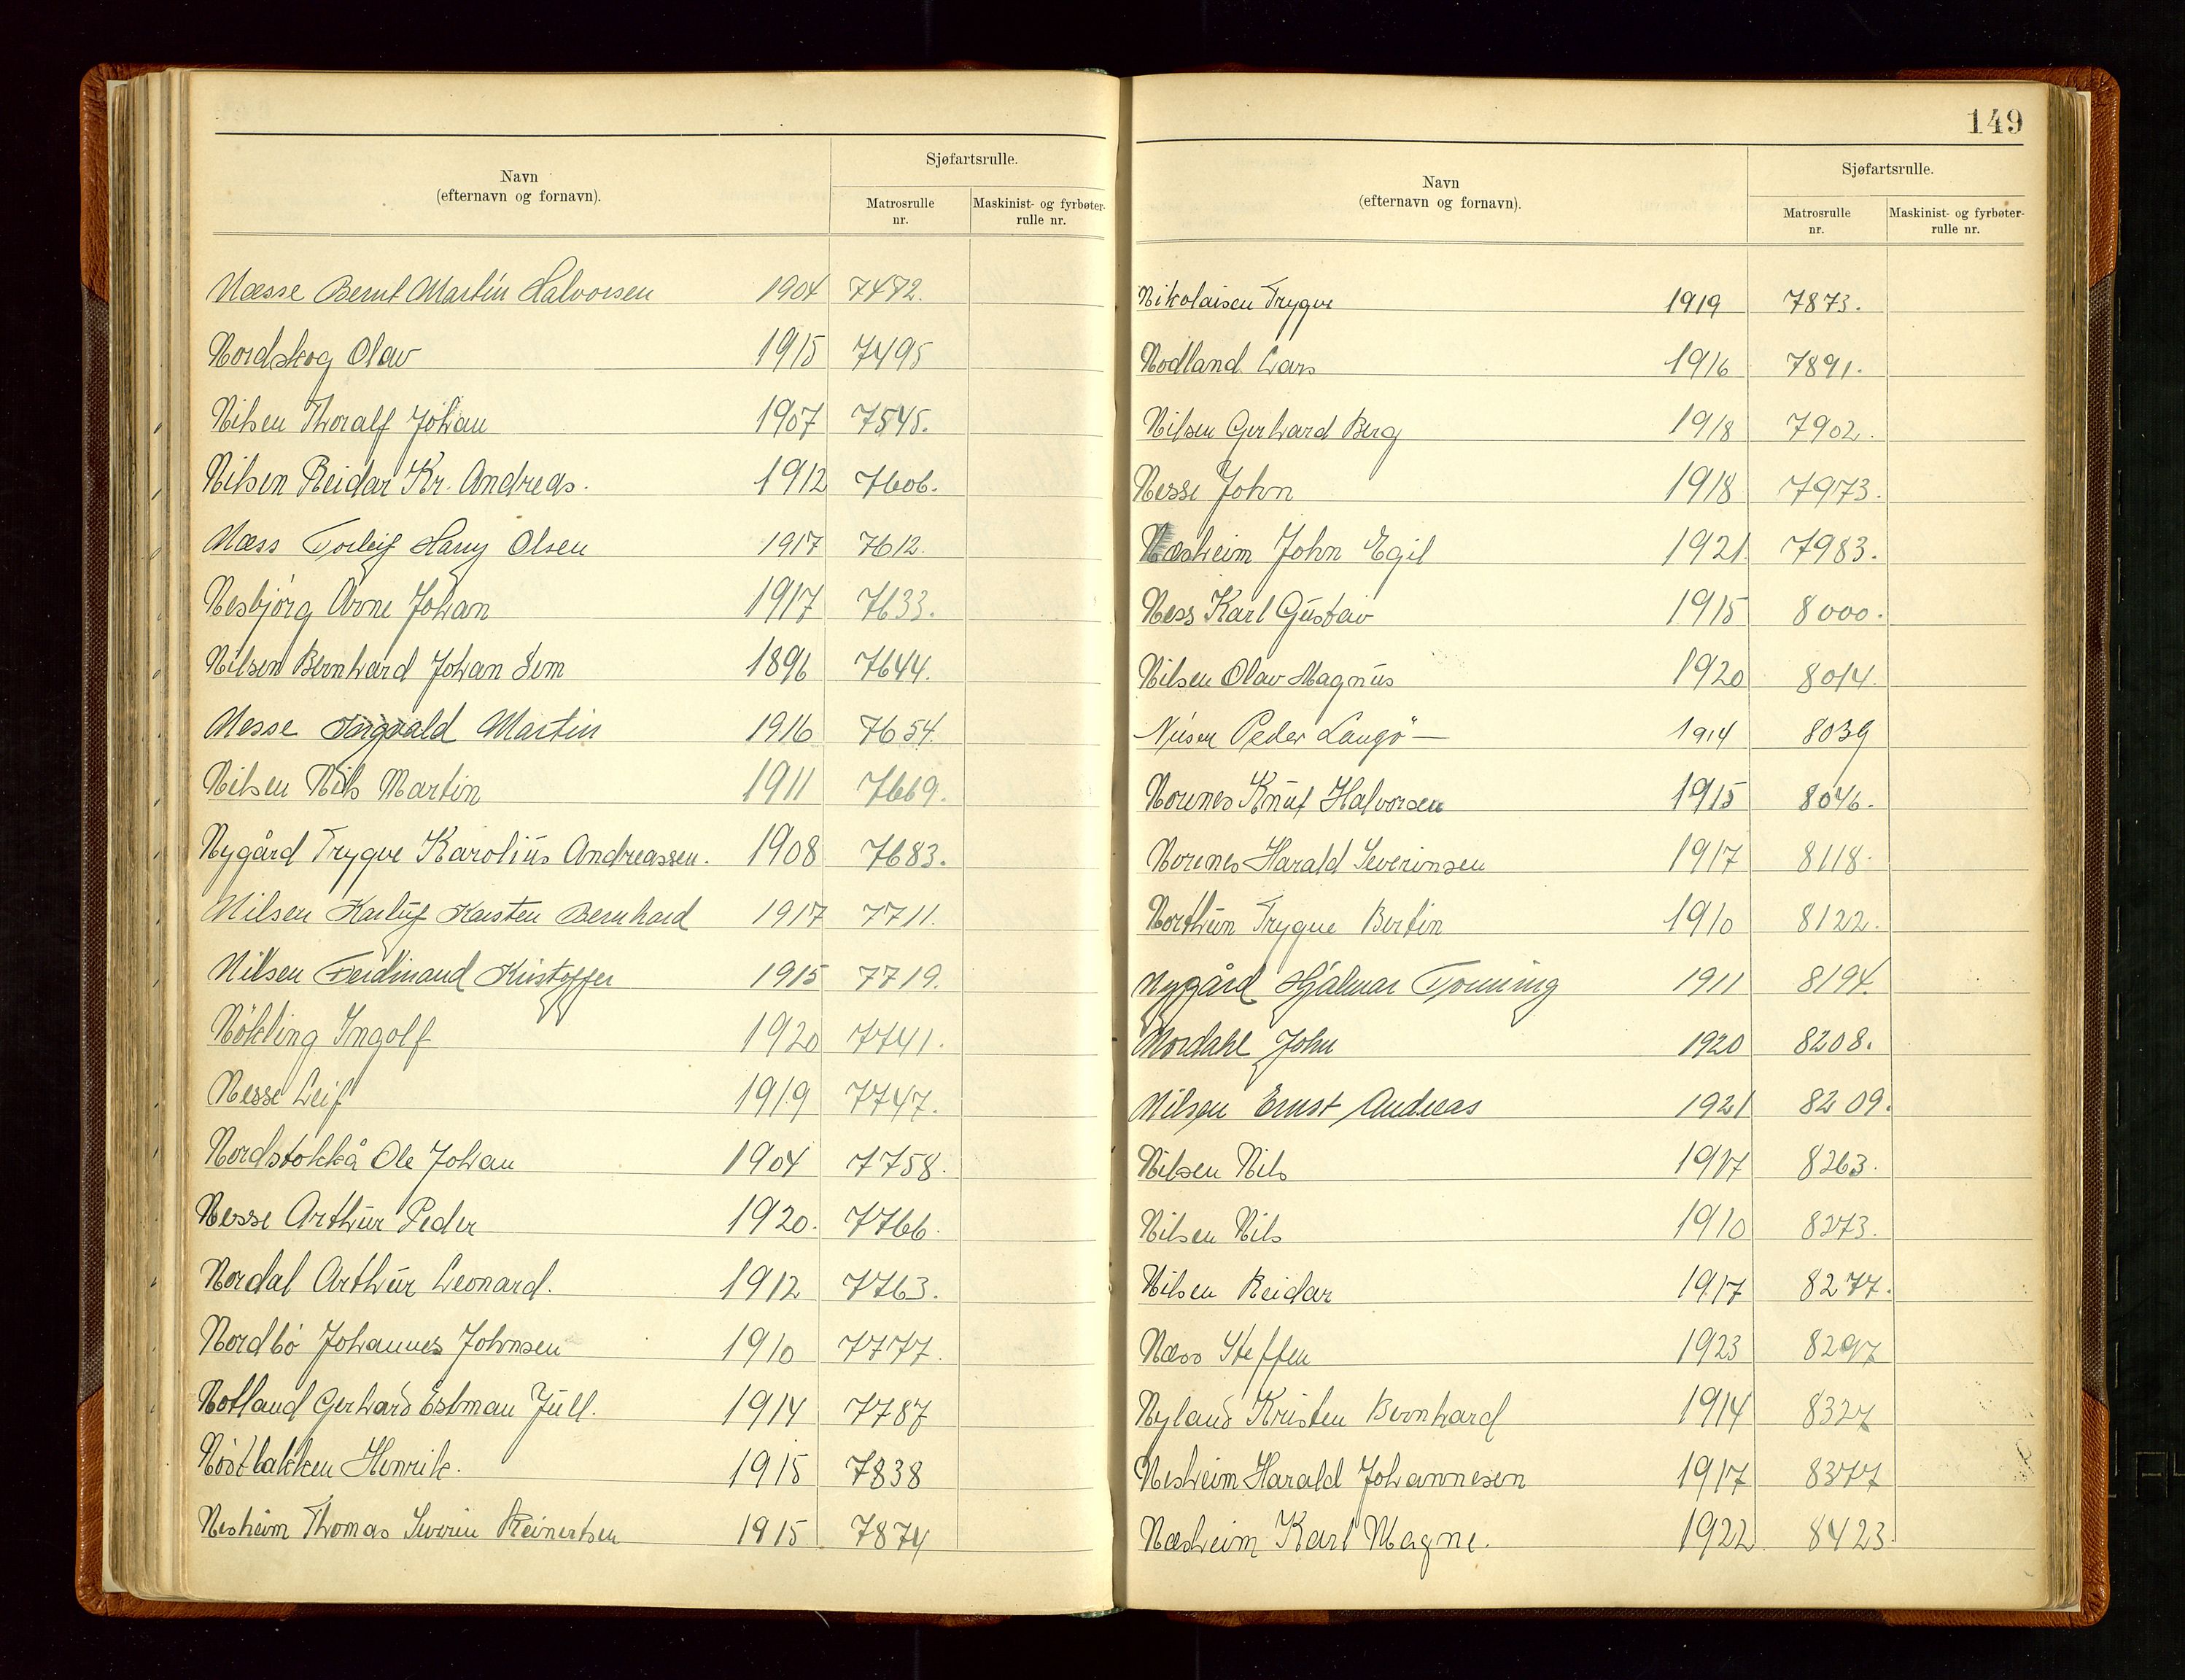 Navn
(efternavn og fornavn).
Sjøfartsrulle.
Matrosrulle
nr.
Maskinist- og fyrbøter-
rulle nr.
Næsse Bernt Martin Halvorsen 1904 7472.
Nordskog Olav 1915 7495
Nilsen Thoralf Johan 1907 7545.
Nilsen Reidar Kr. Andreas. 1912 7606.
Næss Torleif Harry Olsen 1917 7612.
Nesbjörg Arne Johan 1917 7633.
Nilsen Bernhard Johan Sem 1896 7644.
Nesse Ingvald Martin 1916 7654.
Nilsen Nils Martin 1911 7669.
Nygård Trygve Karolius Andreassen. 1908 7683.
Nilsen Karluf Karsten Bernhard 1917 7711.
Nilsen Ferdinand Kristoffer 1915 7719.
Nökling Ingolf 1920 7741.
Nesse Leif 1919 7747.
Nordstokkå Ole Johan 1904 7758.
Nesse Arthur Peder 1920. 7766.
Nordal Arthur Leonard. 1912 7763.
Nordbö Johannes Johnsen 1910 7777.
Notland Gerhard Estman Jull. 1914 7787
Nöstbakken Henrik. 1915 7838
Nesheim Thomas Severin Reinertsen 1915 7874
149
Navn
(efternavn og fornavn).
Sjøfartsrulle.
Matrosrulle
nr.
Maskinist- og fyrbøter-
rulle nr.
Nikolaisen Trygve 1919 7873.
Nodland Lars 1916 7891.
Nilsen Gerhard Berg 1918 7902.
Nesse John 1918 7973.
Næsheim John Egil 1921. 7983.
Ness Karl Gustav 1915 8000.
Nilsen Olav Magnus 1920 8014.
Peder Langö — 1914 8039
Nornes Knut Halvorsen 1915 8046.
Nornes Harald Severinsen 1917 8118.
Northun Trygve Bertin 1910 8122.
Nygård Hjalmar Tonning 1911 8194.
Nordahl John 1920 8208.
Nilsen Ernst Andreas 1921 8209.
Nilsen Nils 1917 8263.
Nilsen Nils 1910 8273.
Nilsen Reidar 1917 8277.
Næss Steffen 1923 8297
Nyland Kristen Bernhard 1914 8327
Nesheim Harald Johannesen 1917 8377
Næsheim Karl Magne. 1922 8423.